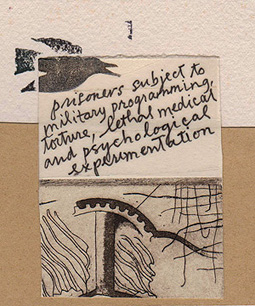 prisoners subject to
military programming,
torture, lethal medical
and psychological
experimentation